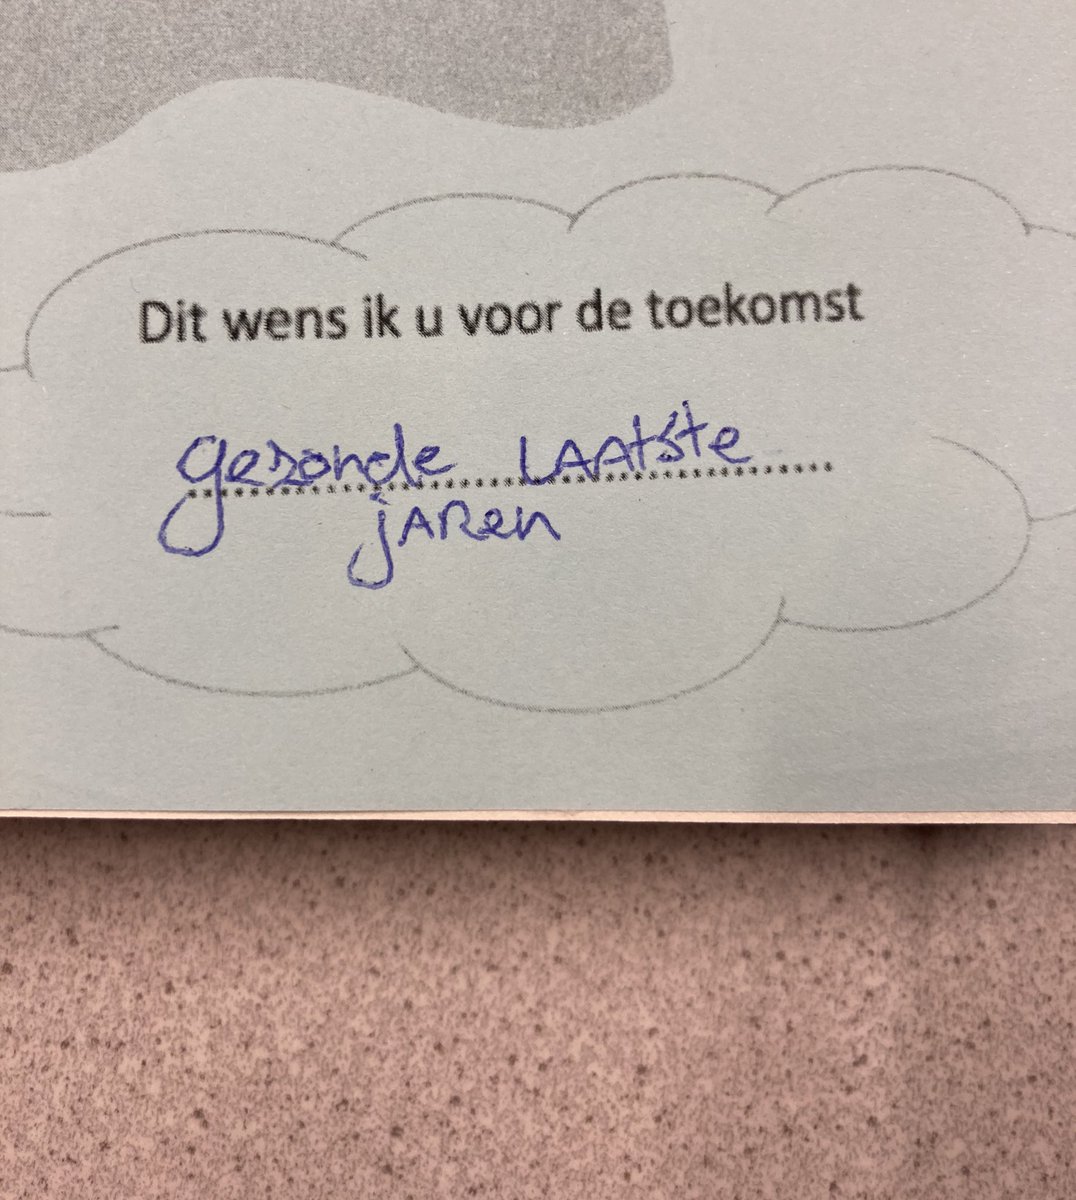 Dit wens ik u voor de toekomst
gezonde LAAtste
jARen